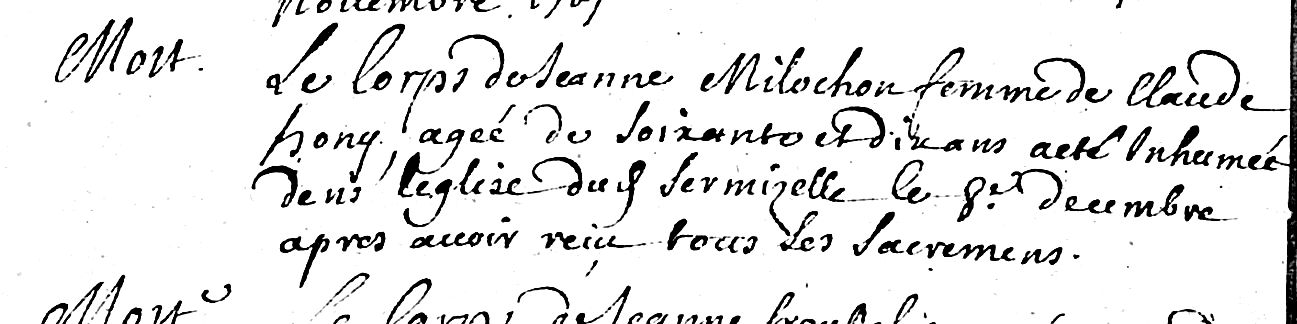 novembre
Mort.
Le Corps de Jeanne Milochon femme de Claude
hony, ageé de soixante et dix ans aeté Inhumeé
dens leglise dud Sermizelle le 8.e decembre
apres avoir reçu tous les sacremens.
Mort
Le Corps de Jeanne